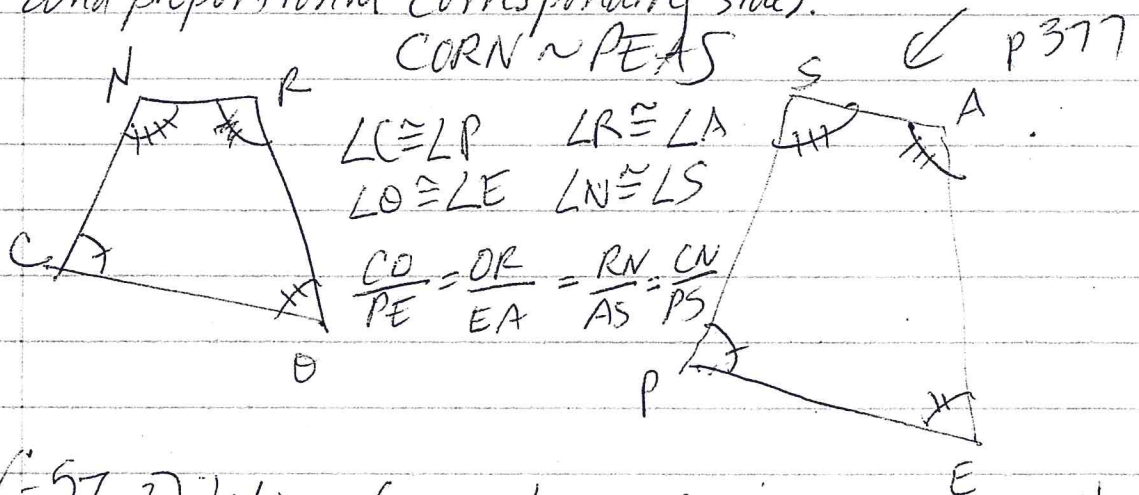 and proportional corresponding sides.
CORN ~ PEAS
↙ p 377
N R
S A
∠C ≅ ∠P ∠R ≅ ∠A
∠O ≅ ∠E ∠N ≅ ∠S
C
CO/PE = OR/EA = RN/AS = CN/PS
O
P
E